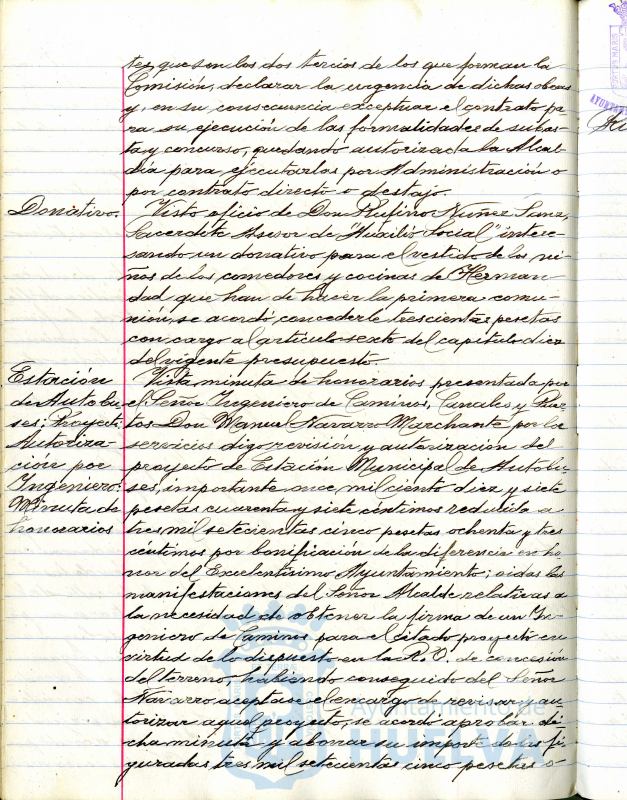 tes que son los dos tercios de los que forman la
Comisión, declarar la urgencia de dichas obras
y, en su consecuencia exceptuar el contrato pa-
ra su ejecución de las formalidades de subas-
ta y concurso, quedando autorizada la Alcal-
día para ejecutarlas por Administración o
por contrato directo o destajo.
Donativo.
Visto oficio de Don Rufino Nuñez Sanz,
Sacerdote Asesor de "Auxilio Social" intere-
sando un donativo para el vestido de los ni-
ños de los comedores y cocinas de Herman-
dad que han de hacer la primera comu-
nión, se acordó concederle trescientas pesetas
con cargo al artículo sexto del capítulo diez
del vigente presupuesto.
Estación
de Autobu-
ses: Proyecto:
Autoriza-
ción por
Ingeniero:
Minuta de
honorarios
Vista minuta de honorarios presentada por
el Señor Ingeniero de Caminos, Canales y Puer-
tos Don Manuel Navarro Marchante por los
servicios digo revisión y autorización del
proyecto de Estación Municipal de Autobu-
ses, importante once mil ciento diez y siete
pesetas cuarenta y siete céntimos reducida a
tres mil setecientas cinco pesetas ochenta y tres
céntimos por bonificación de la diferencia en ho-
nor del Excelentísimo Ayuntamiento; oidas las
manifestaciones del Señor Alcalde relativas a
la necesidad de obtener la firma de un In-
geniero de Caminos para el citado proyecto en
virtud de lo dispuesto en la R.O. de concesión
del terreno, habiendo conseguido del Señor
Navarro aceptase el encargo de revisar y au-
torizar aquel proyecto, se acordó aprobar di-
cha minuta y abonar su importe de las fi-
guradas tres mil setecientas cinco pesetas o-
Ayuntamiento de
HUELVA